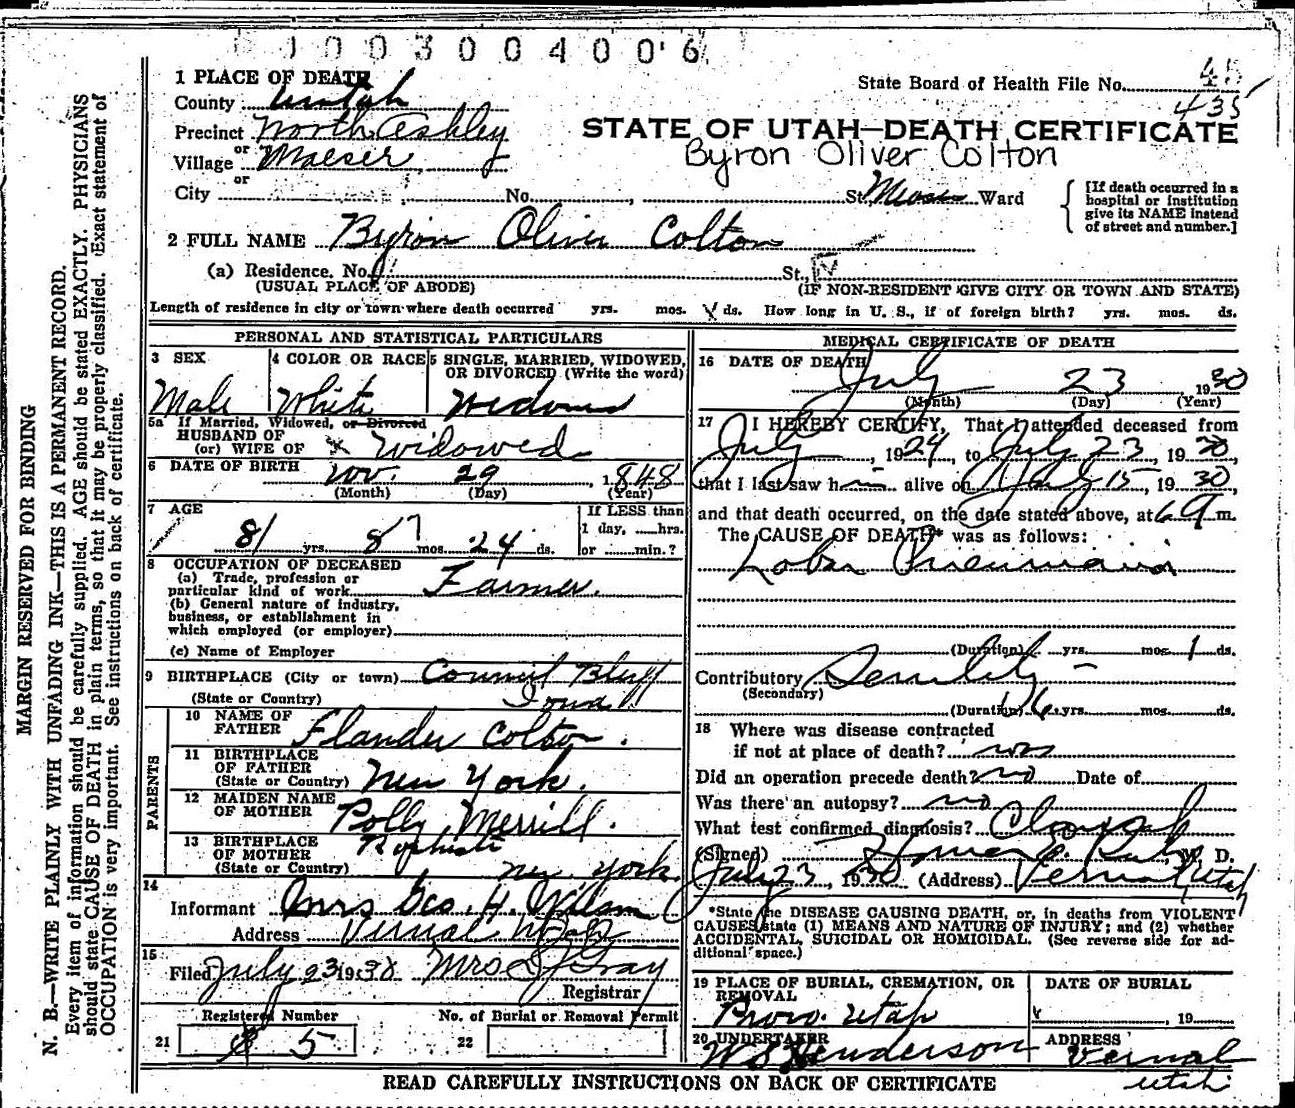 0003004006
1 PLACE OF DEATH
State Board of Health File No. 45
435
County Uintah
Precinct North Ashley
or
Village Maeser
or
City No. , St. Ward
STATE OF UTAH—DEATH CERTIFICATE
Byron Oliver Colton
{ [If death occurred in a hospital or institution give its NAME instead of street and number.]
2 FULL NAME Byron Oliver Colton
(a) Residence. No. St.,
(USUAL PLACE OF ABODE) (IF NON-RESIDENT GIVE CITY OR TOWN AND STATE)
Length of residence in city or town where death occurred yrs. mos. ds. How long in U. S., if of foreign birth? yrs. mos. ds.
PERSONAL AND STATISTICAL PARTICULARS
3 SEX
Male
4 COLOR OR RACE
White
5 SINGLE, MARRIED, WIDOWED,
OR DIVORCED (Write the word)
Widowed
5a If Married, Widowed, or Divorced
HUSBAND OF
(or) WIFE OF Widowed
6 DATE OF BIRTH
Nov. 29, 1848
(Month) (Day) (Year)
7 AGE
81 yrs. 8 7 mos. 24 ds.
If LESS than
1 day, ......hrs.
or ......min.?
8 OCCUPATION OF DECEASED
(a) Trade, profession or
particular kind of work Farmer.
(b) General nature of industry,
business, or establishment in
which employed (or employer)
(c) Name of Employer
9 BIRTHPLACE (City or town) Council Bluff
(State or Country) Iowa
PARENTS
10 NAME OF
FATHER Flander Colton.
11 BIRTHPLACE
OF FATHER
(State or Country) New York.
12 MAIDEN NAME
OF MOTHER Polly Merrill.
13 BIRTHPLACE
OF MOTHER
(State or Country) New York.
14
Informant Mrs Geo. H. Wilson
Address Vernal Utah
15
Filed July 23 1930 Mrs Gray
Registrar
Registered Number
21 5
No. of Burial or Removal Permit
22
MEDICAL CERTIFICATE OF DEATH
16 DATE OF DEATH
July 23, 1930
(Month) (Day) (Year)
17 I HEREBY CERTIFY, That I attended deceased from
July, 1924, to July 23, 1930,
that I last saw him alive on July 15, 1930,
and that death occurred, on the date stated above, at 6 a m.
The CAUSE OF DEATH* was as follows:
Lobar Pneumonia
(Duration) yrs. mos. 1 ds.
Contributory Senility
(Secondary)
(Duration) yrs. mos. ds.
18 Where was disease contracted
if not at place of death?
Did an operation precede death? no Date of
Was there an autopsy? no
What test confirmed diagnosis? Clinical
(Signed) Homer E. M. D.
July 23, 1930 (Address) Vernal Utah
*State the DISEASE CAUSING DEATH, or, in deaths from VIOLENT
CAUSES, state (1) MEANS AND NATURE OF INJURY; and (2) whether
ACCIDENTAL, SUICIDAL OR HOMICIDAL. (See reverse side for ad-
ditional space.)
19 PLACE OF BURIAL, CREMATION, OR
REMOVAL
Provo. Utah
DATE OF BURIAL
, 19
20 UNDERTAKER
W S Henderson
ADDRESS
Vernal
Utah
READ CAREFULLY INSTRUCTIONS ON BACK OF CERTIFICATE
MARGIN RESERVED FOR BINDING
N. B.—WRITE PLAINLY WITH UNFADING INK—THIS IS A PERMANENT RECORD.
Every item of information should be carefully supplied. AGE should be stated EXACTLY. PHYSICIANS
should state CAUSE OF DEATH in plain terms, so that it may be properly classified. Exact statement of
OCCUPATION is very important. See instructions on back of certificate.